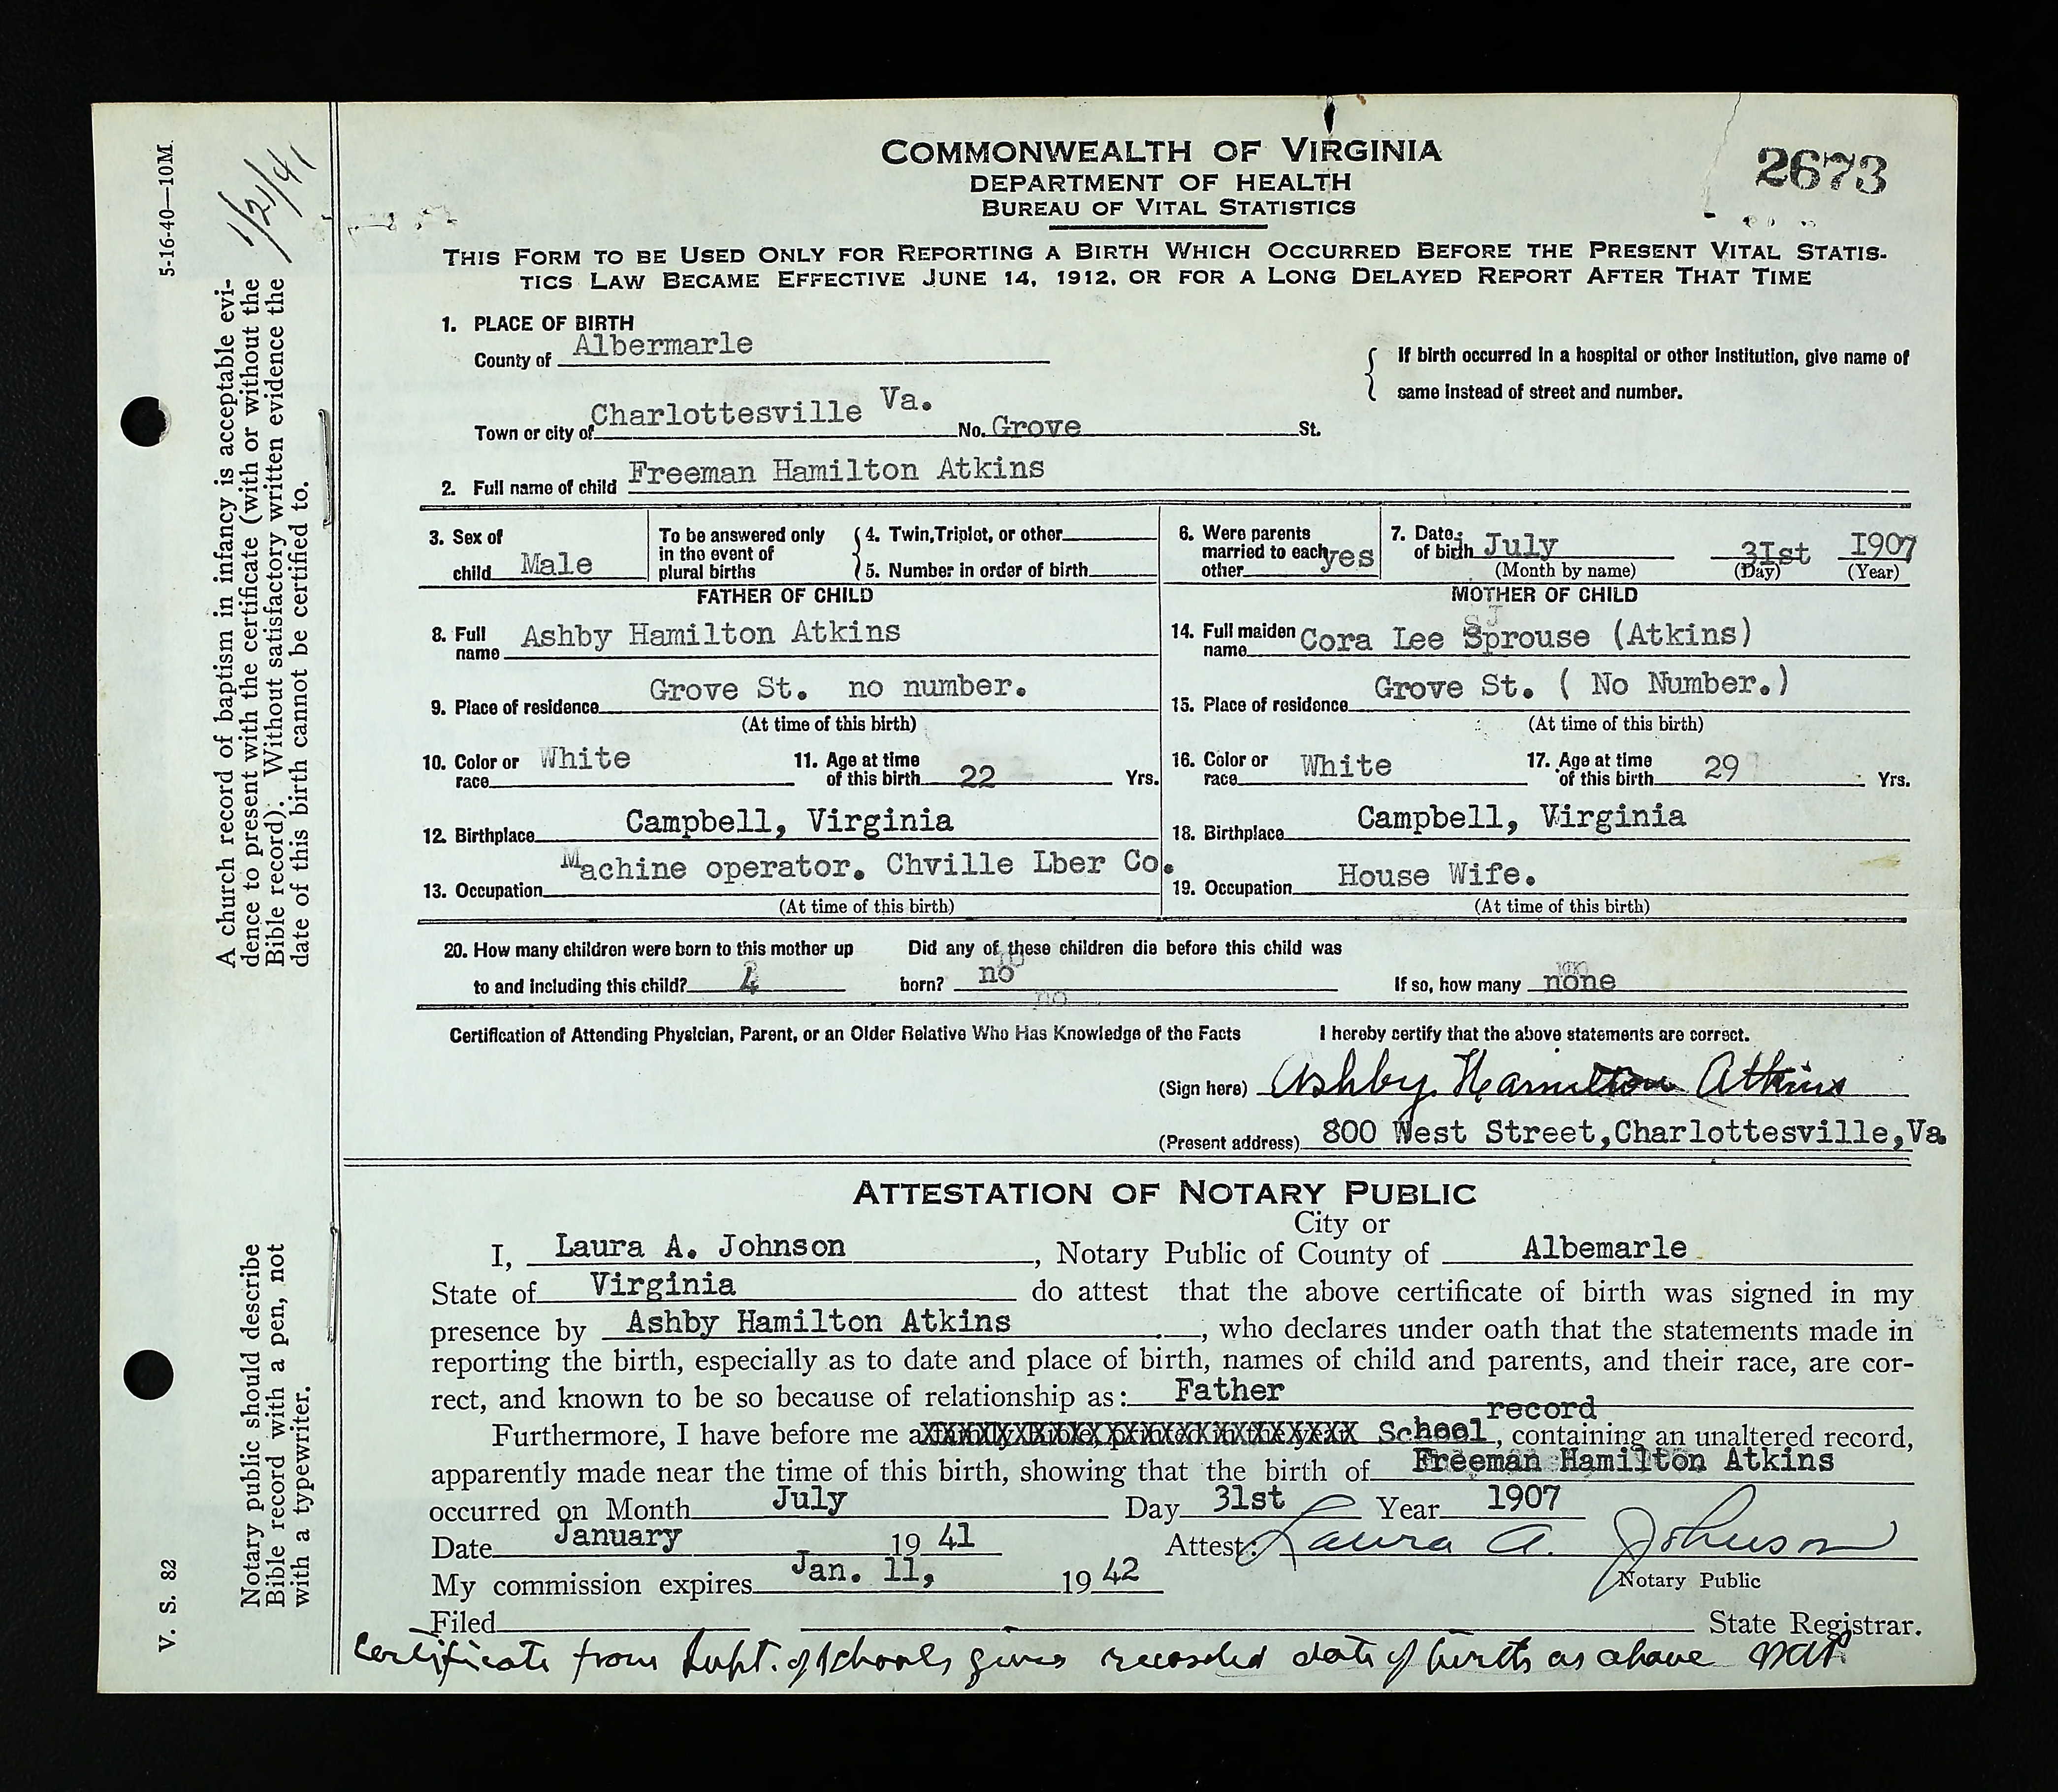 5-16-40—10M.
1/21/41
A church record of baptism in infancy is acceptable evi-
dence to present with the certificate (with or without the
Bible record). Without satisfactory written evidence the
date of this birth cannot be certified to.
Notary public should describe
Bible record with a pen, not
with a typewriter.
V. S. 82
COMMONWEALTH OF VIRGINIA
DEPARTMENT OF HEALTH
BUREAU OF VITAL STATISTICS
2673
THIS FORM TO BE USED ONLY FOR REPORTING A BIRTH WHICH OCCURRED BEFORE THE PRESENT VITAL STATIS-
TICS LAW BECAME EFFECTIVE JUNE 14, 1912, OR FOR A LONG DELAYED REPORT AFTER THAT TIME
1. PLACE OF BIRTH
County of Albermarle
If birth occurred in a hospital or other institution, give name of
same instead of street and number.
Town or city of Charlottesville Va. No. Grove St.
2. Full name of child Freeman Hamilton Atkins
3. Sex of
child Male
To be answered only
in the event of
plural births
4. Twin, Triplet, or other
5. Number in order of birth
6. Were parents
married to each
other yes
7. Date
of birth July 3Ist I907
(Month by name) (Day) (Year)
FATHER OF CHILD
8. Full
name Ashby Hamilton Atkins
9. Place of residence Grove St. no number.
(At time of this birth)
10. Color or
race White
11. Age at time
of this birth 22 Yrs.
12. Birthplace Campbell, Virginia
13. Occupation Machine operator. Chville Lber Co.
(At time of this birth)
MOTHER OF CHILD
14. Full maiden
name Cora Lee Sprouse (Atkins)
15. Place of residence Grove St. ( No Number.)
(At time of this birth)
16. Color or
race White
17. Age at time
of this birth 29 Yrs.
18. Birthplace Campbell, Virginia
19. Occupation House Wife.
(At time of this birth)
20. How many children were born to this mother up
to and including this child? 4
Did any of these children die before this child was
born? no
If so, how many none
Certification of Attending Physician, Parent, or an Older Relative Who Has Knowledge of the Facts I hereby certify that the above statements are correct.
(Sign here) Ashby Hamilton Atkins
(Present address) 800 West Street,Charlottesville,Va.
ATTESTATION OF NOTARY PUBLIC
City or
I, Laura A. Johnson, Notary Public of County of Albemarle
State of Virginia do attest that the above certificate of birth was signed in my
presence by Ashby Hamilton Atkins, who declares under oath that the statements made in
reporting the birth, especially as to date and place of birth, names of child and parents, and their race, are cor-
rect, and known to be so because of relationship as: Father
record
Furthermore, I have before me a School, containing an unaltered record,
apparently made near the time of this birth, showing that the birth of Freeman Hamilton Atkins
occurred on Month July Day 31st Year 1907
Date January 19 41 Attest: Laura A. Johnson
My commission expires Jan. 11, 19 42 Notary Public
Filed State Registrar.
Certificate from Supt. of Schools gives recorded date of birth as above